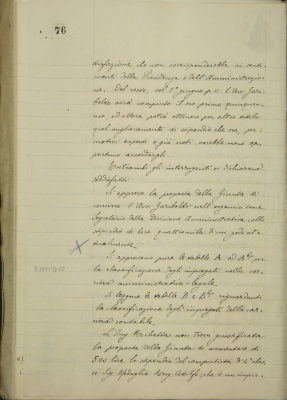 76
disfazione che non corrisponderebbe ai senti-
menti della Presidenza e dell'Amministrazio-
ne. Del resto, col 1° giugno p.v. l'Avv. Gari-
boldi avrà compiuto il suo primo quinquen-
nio, ed allora potrà ottenere per altro titolo
quel miglioramento di stipendio che ora, per i
motivi esposti e già noti, sarebbe meno op-
portuno accordargli.
Entrambi gli interroganti si dichiarano
soddisfatti.
Si approva la proposta della Giunta di
l'Avv. Gariboldi nell'organico come
Segretario della Divisione Amministrativa, collo
stipendio di lire quattromila
Si approvano pure le tabelle A ed A bis per
la classificazione degli impiegati nella car-
riera amministrativa-legale.
Si leggono le tabelle B e B bis riguardanti
la classificazione degli impiegati della car-
riera contabile.
L'Ing. non trova giustificata
la proposta della Giunta di aumentare di
500 lire lo stipendio del computista di 2ª classe
Sig. che è un impie-